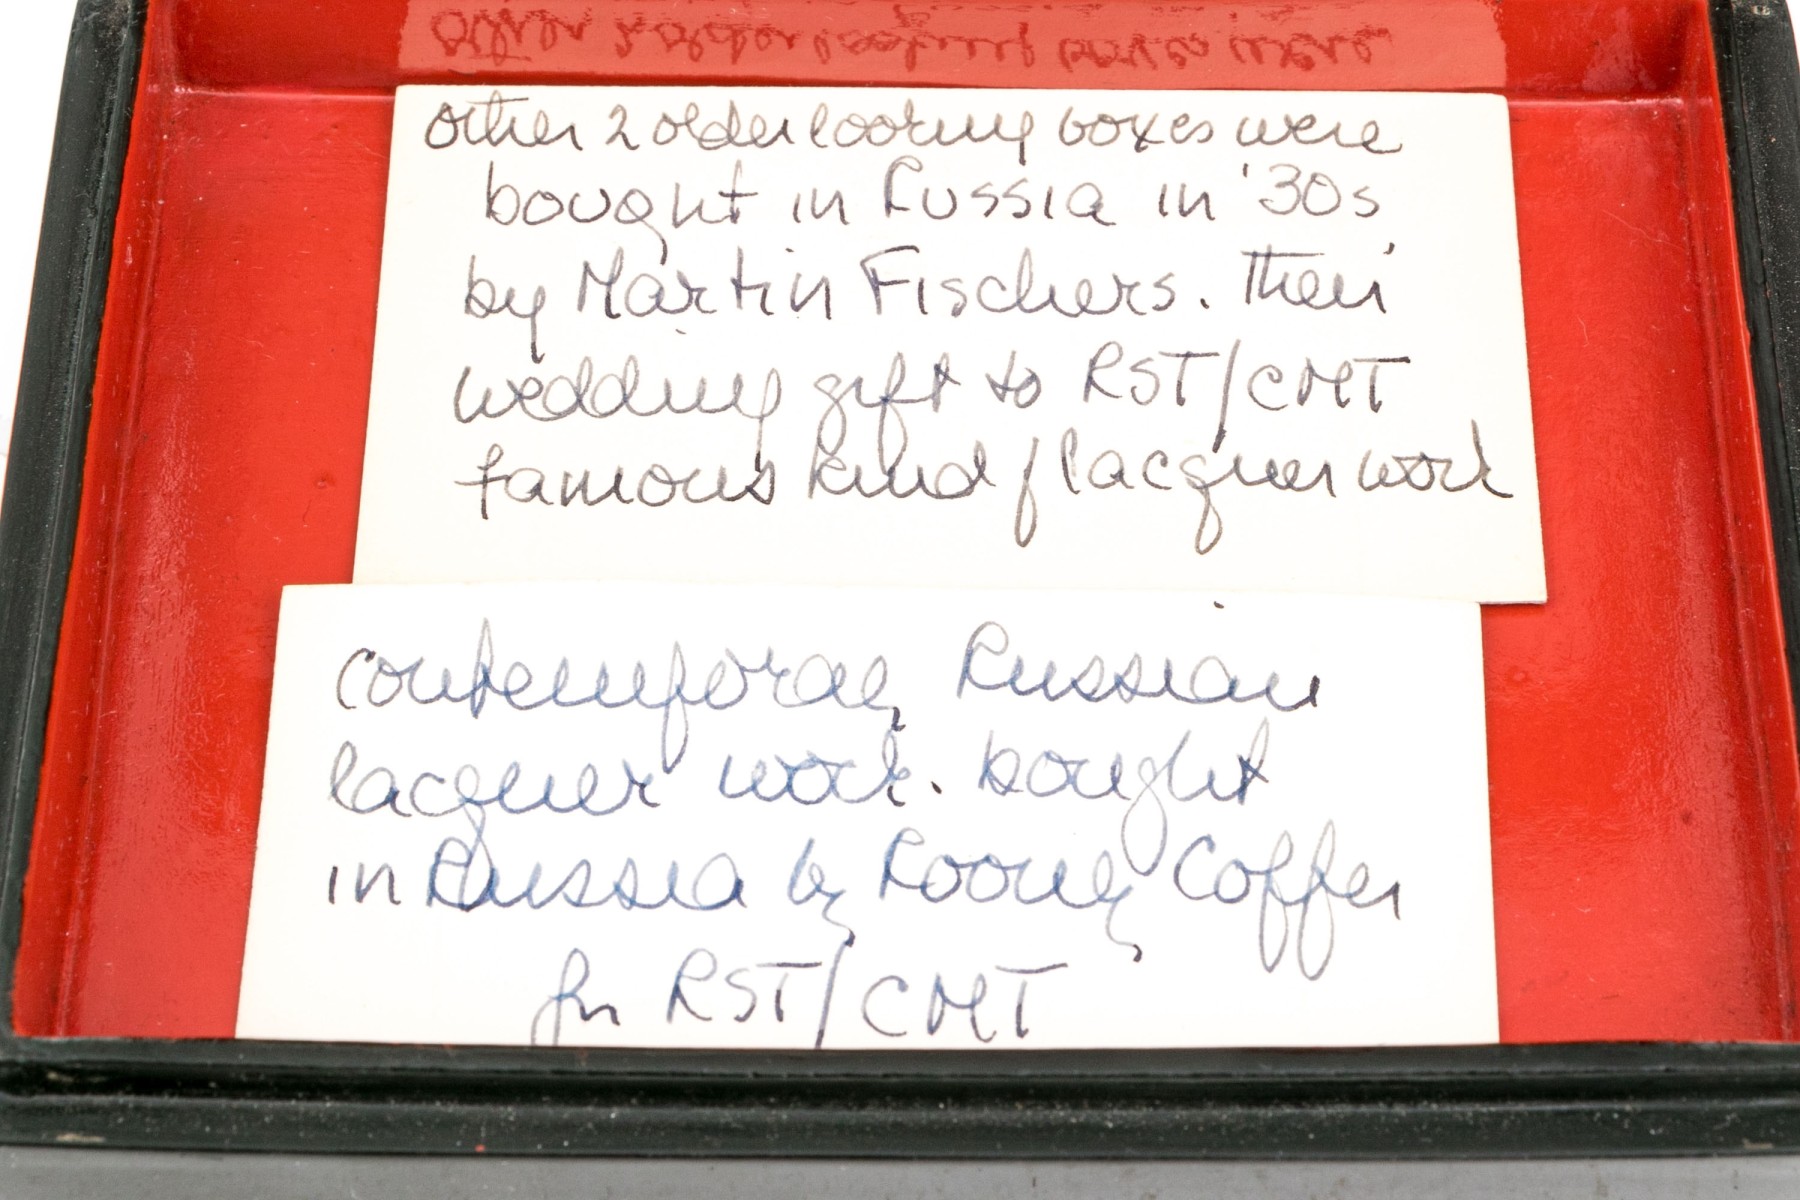 Other 2 older looking boxes were
bought in Russia in '30s
by Martin Fischers. Their
wedding gift to RST/CMT
famous kind of lacquer work
contemporary Russian
lacquer work. bought
in Russia by Coffer
for RST/CMT